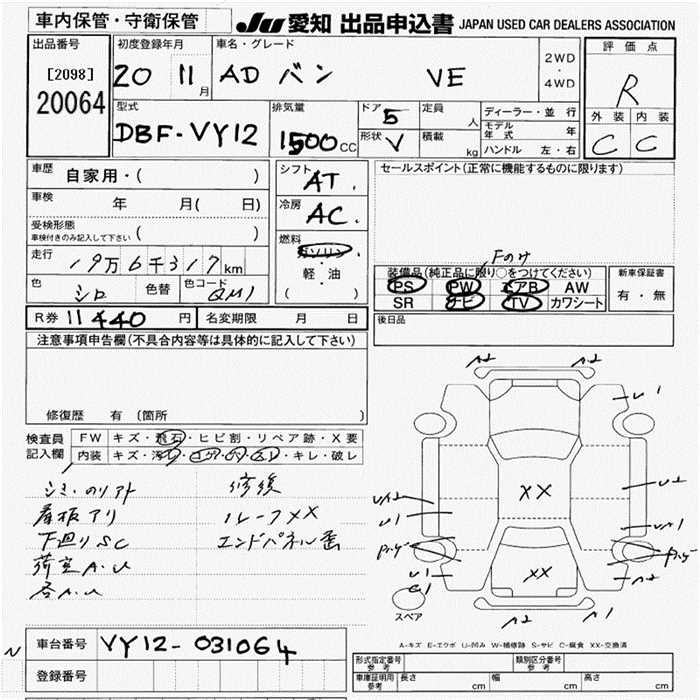 車内保管・守衛保管
JU 愛知 出品申込書 JAPAN USED CAR DEALERS ASSOCIATION
出品番号
[2098]
20064
初度登録年月
20 11月
車名・グレード
AD バン VE
2WD
・
4WD
評価点
R
外装 内装
C C
型式
DBF-VY12
排気量
1500CC
ドア 5
形状 V
定員 人
積載 kg
ディーラー・並行
モデル年式 年
ハンドル 左・右
車歴 自家用・( )
車検 年 月( 日)
受検形態
車検付きのみ記入して下さい ( )
走行 19万6千317km
色 シロ 色替 色コード QM1
R券 11440円 名変期限 月 日
シフト
AT.
冷房
AC.
燃料
ガソリン
・
軽・油
( )
セールスポイント(正常に機能するものに限ります)
Fのみ
装備品(純正品に限り○をつけてください)
PS PW エアB AW
SR ナビ TV カワシート
新車保証書
有・無
後日品
注意事項申告欄(不具合内容等は具体的に記入して下さい)
修復歴 有 (箇所 )
検査員
記入欄
FW キズ・飛石・ヒビ割・リペア跡・X要
内装 キズ・汚レ・コゲ・穴・スレ・キレ・破レ
シミ・のりアト
看板アリ
下廻りSC
荷室A.U
各A.U
修復
ルーフXX
エンドパネル歪
A2 A2
U1
UA2
U1
XX
UA1
XX
U1
C1
A2
スペア
A2 A1
A-キズ E-エクボ U-凹み W-補修跡 S-サビ C-腐食 XX-交換済
N
車台番号 VY12-031064
登録番号
形式指定番号
参考
類別区分番号
参考
車庫証明用
参考
長さ cm 幅 cm 高さ cm